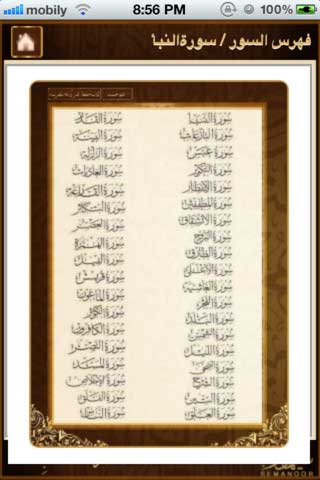 mobily 8:56 PM
فهرس السور / سورةالنبأ
سورة النبأ
سورة النازعات
سورة عبس
سورة التكوير
سورة الانفطار
سورة المطففين
سورة الانشقاق
سورة البروج
سورة الطارق
سورة الأعلى
سورة الغاشية
سورة الفجر
سورة البلد
سورة الشمس
سورة الليل
سورة الضحى
سورة الشرح
سورة التين
سورة العلق
سورة القدر
سورة البينة
سورة الزلزلة
سورة العاديات
سورة القارعة
سورة التكاثر
سورة العصر
سورة الهمزة
سورة الفيل
سورة قريش
سورة الماعون
سورة الكوثر
سورة الكافرون
سورة النصر
سورة المسد
سورة الإخلاص
سورة الفلق
سورة الناس
SEMANOOR